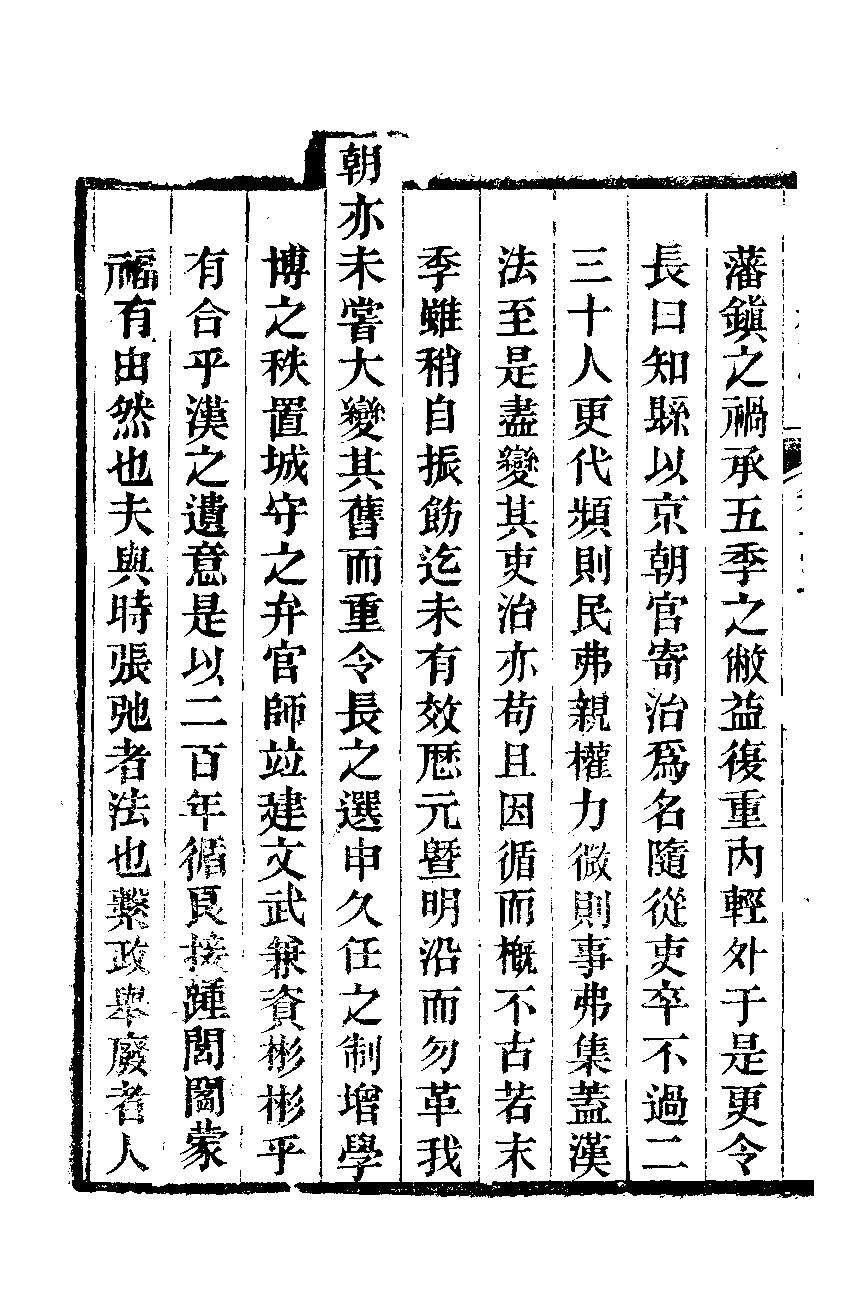 藩鎭之禍承五季之敝益復重內輕外于是更令
長曰知縣以京朝官寄治爲名隨從吏卒不過二
三十人更代頻則民弗親權力微則事弗集蓋漢
法至是盡變其吏治亦苟且因循而槪不古若末
季雖稍自振飭迄未有效厯元曁明沿而勿革我
朝亦未嘗大變其舊而重令長之選申久任之制增學
博之秩置城守之弁官師竝建文武兼資彬彬乎
有合乎漢之遺意是以二百年循良接踵閭閻蒙
福有由然也夫與時張弛者法也繫政舉廢者人